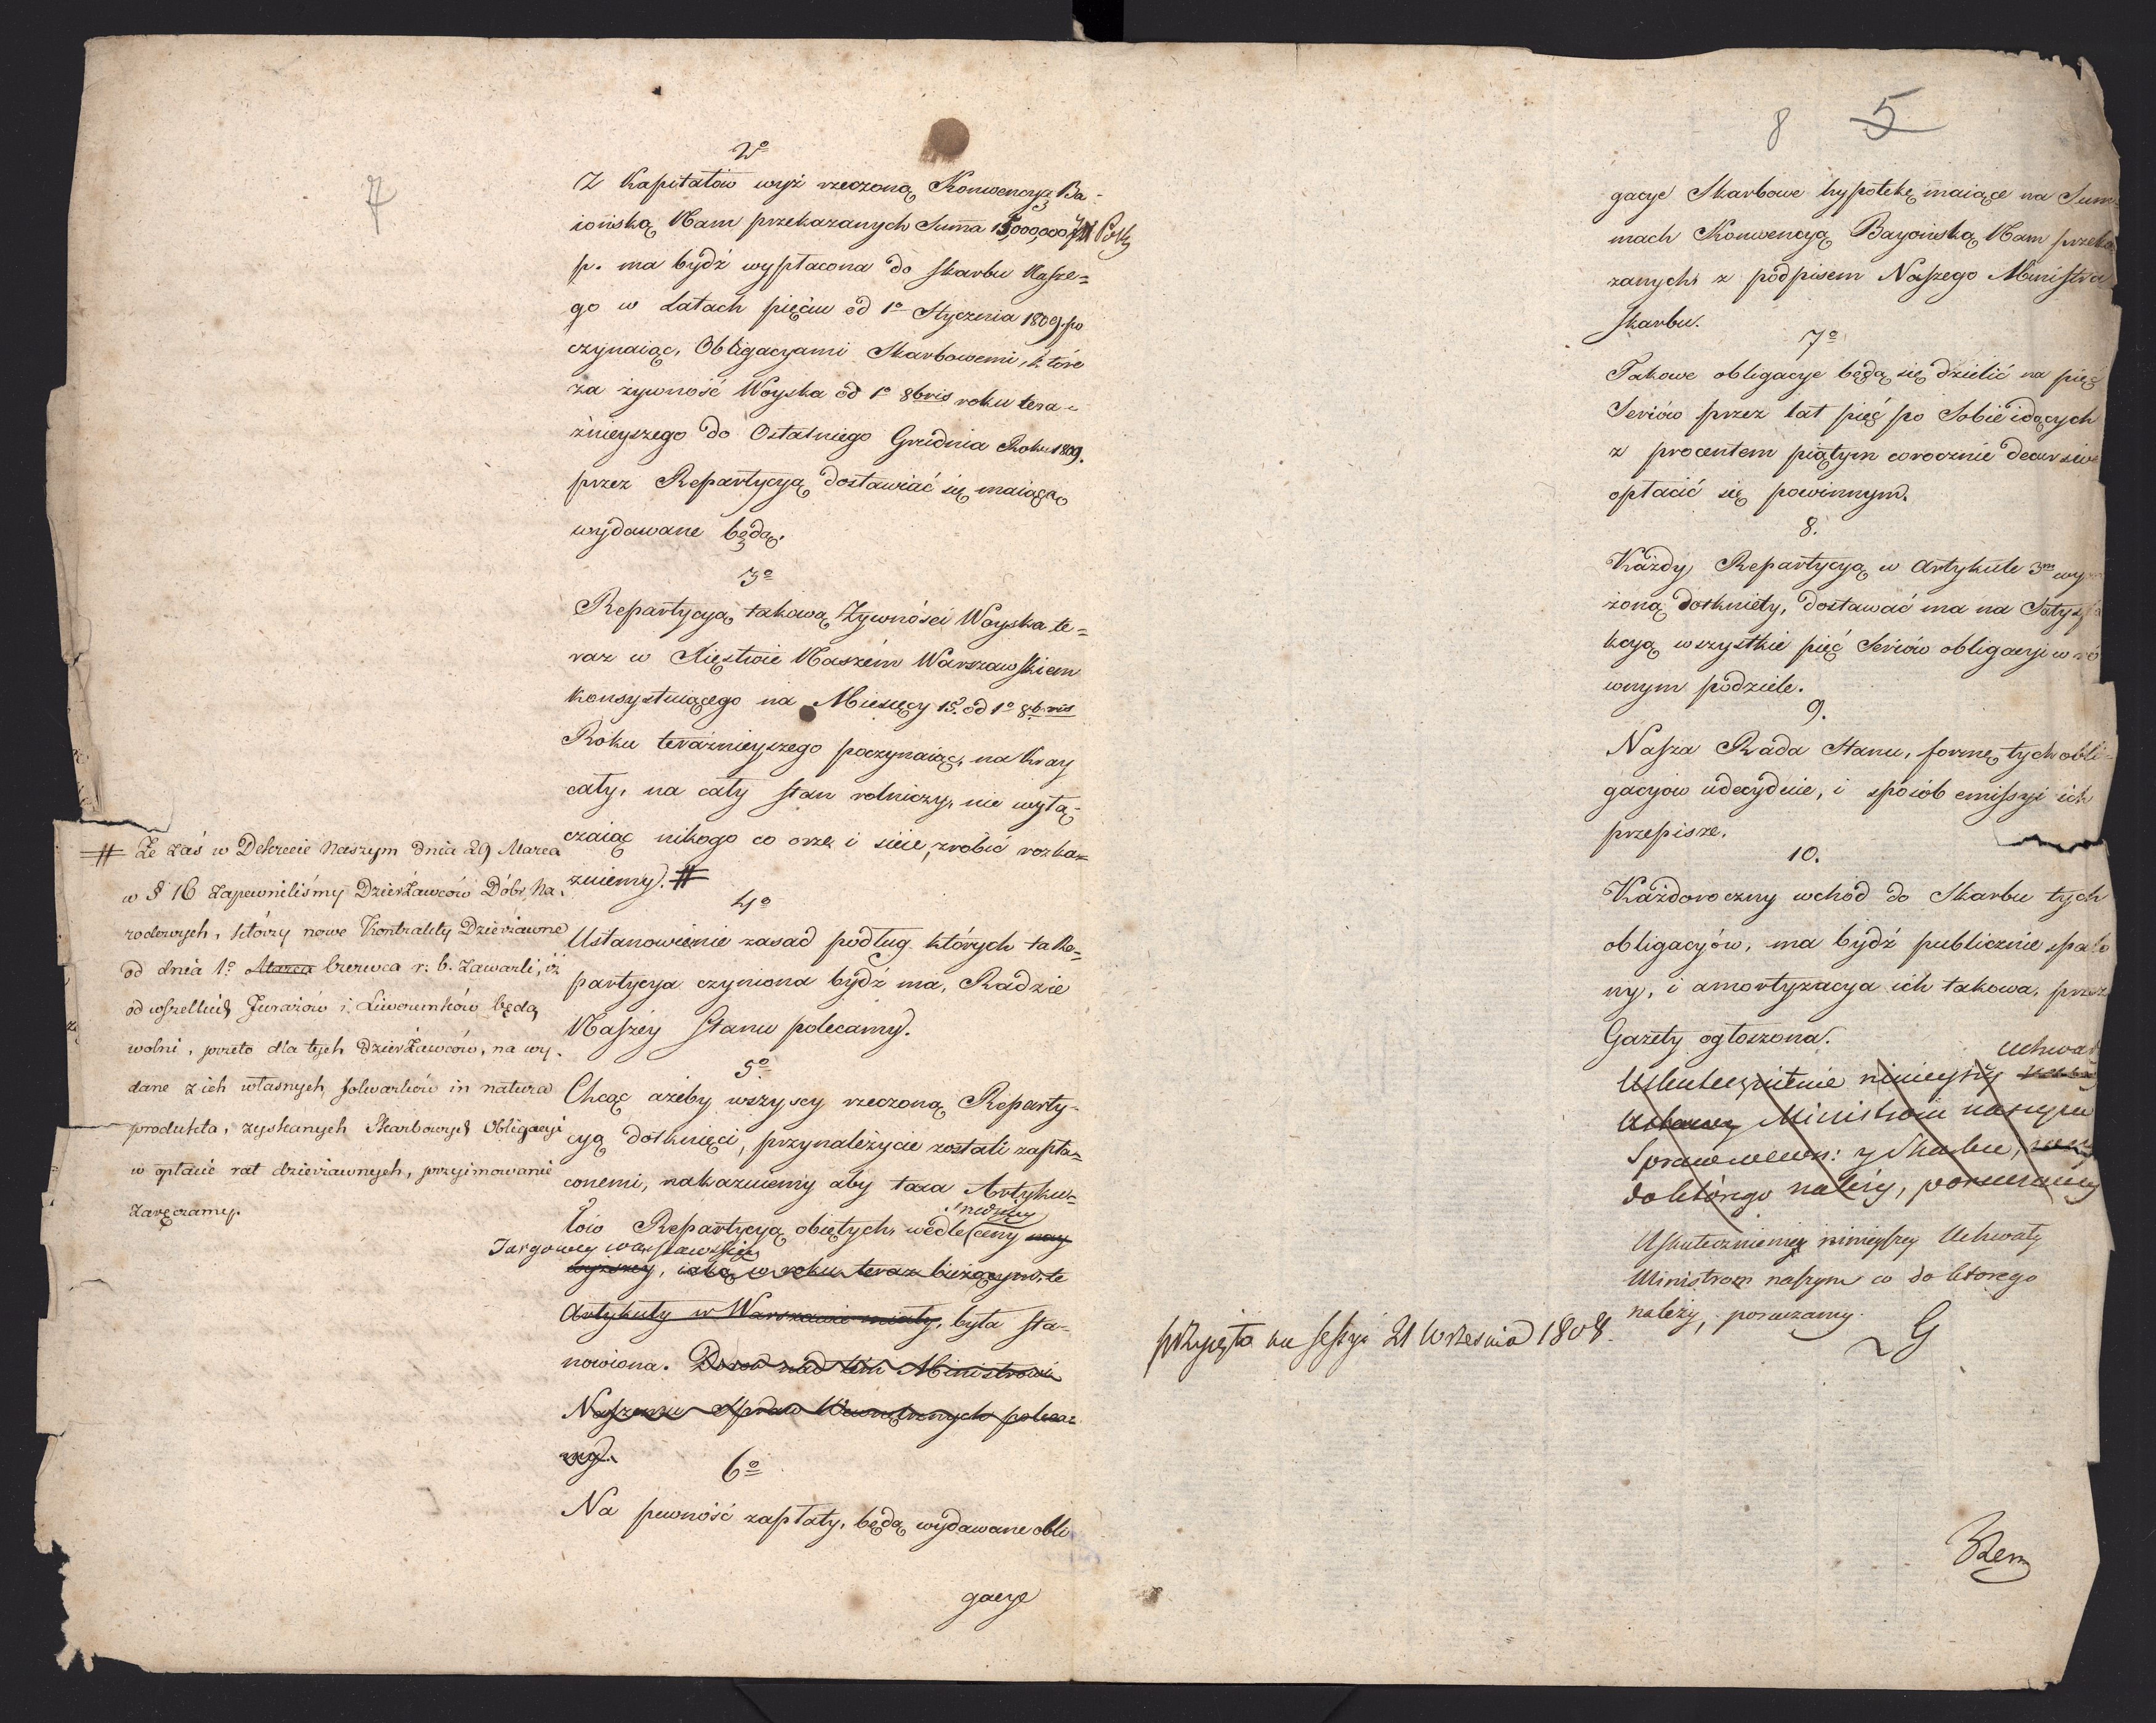 7
2º
Z Kapitałów wyż rzeczoną Konwencyą Ba-
iońską Nam przekazanych Summa 15,000,000
p. ma bydź wypłacona do skarbu Nasze=
go w Latach pięciu od 1º Stycznia 1809. po
czynaiąc, Obligacyami Skarbowemi, które
za żywność Woyska od 1º 8bris roku tera-
żnieyszego do Ostatniego Grudnia Roku 1809.
przez Repartycyą dostawiać się maiącą
wydawane będą.
3º
Repartycyą takową Żywności Woyska te=
raz w Xięstwie Naszém Warszawskiem
konsystuiącego na Miesięcy 15. od 1º 8bris
Roku teraźnieyszego poczynaiąc, na Kray
cały, na cały stan rolniczy, nie wyłą-
czaiąc nikogo co orze i sieie, zrobić rozka=
zuiemy. #
# Że zaś w Dekrecie Naszym dnia 29 Marca
w § 16 zapewniliśmy Dzierżawców Dóbr Na-
rodowych, którzy nowe Kontrakty Dzierżawne
od dnia 1º Marca Czerwca r: b. zawarli, iż
od wszelkich Furażów i Liwerunków będą
wolni, przeto dla tych Dzierżawców, na wy-
dane z ich własnych folwarków in natura
produkta, zyskanych Skarbowych Obligacyi
w opłacie rat dzierżawnych, przyimowanie
zaręczamy.
4º
Ustanowienie zasad podług których ta Re=
partycya czyniona bydź ma, Radzie
Naszéy Stanu polecamy.
5º
Chcąc ażeby wszyscy rzeczoną Reparty-
cyą dotknięci, przynależycie zostali zapła=
conemi, nakazuiemy aby taxa Artyku=
łów Repartycyą obiętych, wedle ceny nay
Targowey warszawskiey
wyższey, iaką w roku teraz bieżącym, te
Artykuły w Warszawie miały, była sta-
nowiona. Dozor nad tém Ministrowi
Naszemu Spraw Wewnętrznych poleca=
my.
6º
Na pewność zapłaty, będą wydawane obli
gacye
8 5
gacye Skarbowe hypotekę maiące na Sum=
mach Konwencyą Bayońską Nam przeka
zanych, z podpisem Naszego Ministra
skarbu.
7º
Takowe obligacye będą się dzielić na pięć
Seriów przez lat pięć po sobie idących
z procentem piątym corocznie decursive
opłacić się powinnym.
8.
Każdy Repartycyą w Artykule 3m wyra
żoną dotknięty, dostawać ma na Satysfa
kcyą wszystkie pięć Seriów obligacyi w ró
wnym podziele.
9.
Nasza Rada Stanu, formę tych obli-
gacyów udecyduie, i sposób emissyi ich
przepisze.
10.
Każdoroczny wchód do Skarbu tych
obligacyów, ma bydź publicznie spalo
ny, i amortyzacya ich takowa, przez
Gazety ogłoszona.
Uchwały
Uskutecznienie ninieyszey
Ustawy Ministrom naszym
Spraw wewn: y Skarbu,
do którego należy, poruczamy
Uskutecznienie ninieyszey Uchwały
Ministrom naszym co do ktorego
należy, poruczamy.
przyięta na sessyi 21 Września 1808.